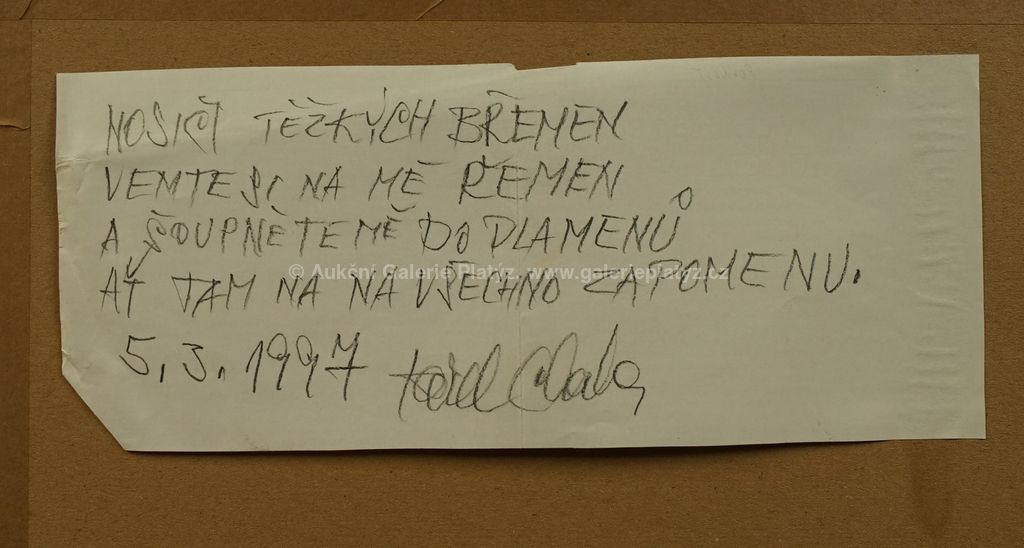 NOSIČI TĚŽKÝCH BŘEMEN
VEMTE SI NA MĚ ŘEMEN
A ŠOUPNĚTE MĚ DO PLAMENŮ
AŤ TAM NA NA VŠECHNO ZAPOMENU.
© Aukční Galerie Platýz, www.galerieplatyz.cz
5.3.1997 Karel